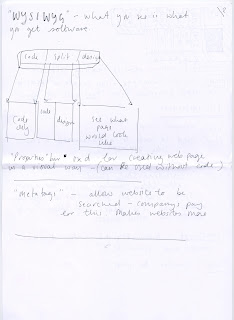 "WYSIWYG" - what you see is what
you get software
code split design
Code only
code
design
See what
page
would look
like
'Properties' bar used for creating web page
in a visual way - (can be used without code)
"Metatags" - allow websites to be
searched - companys pay
for this. Makes websites more